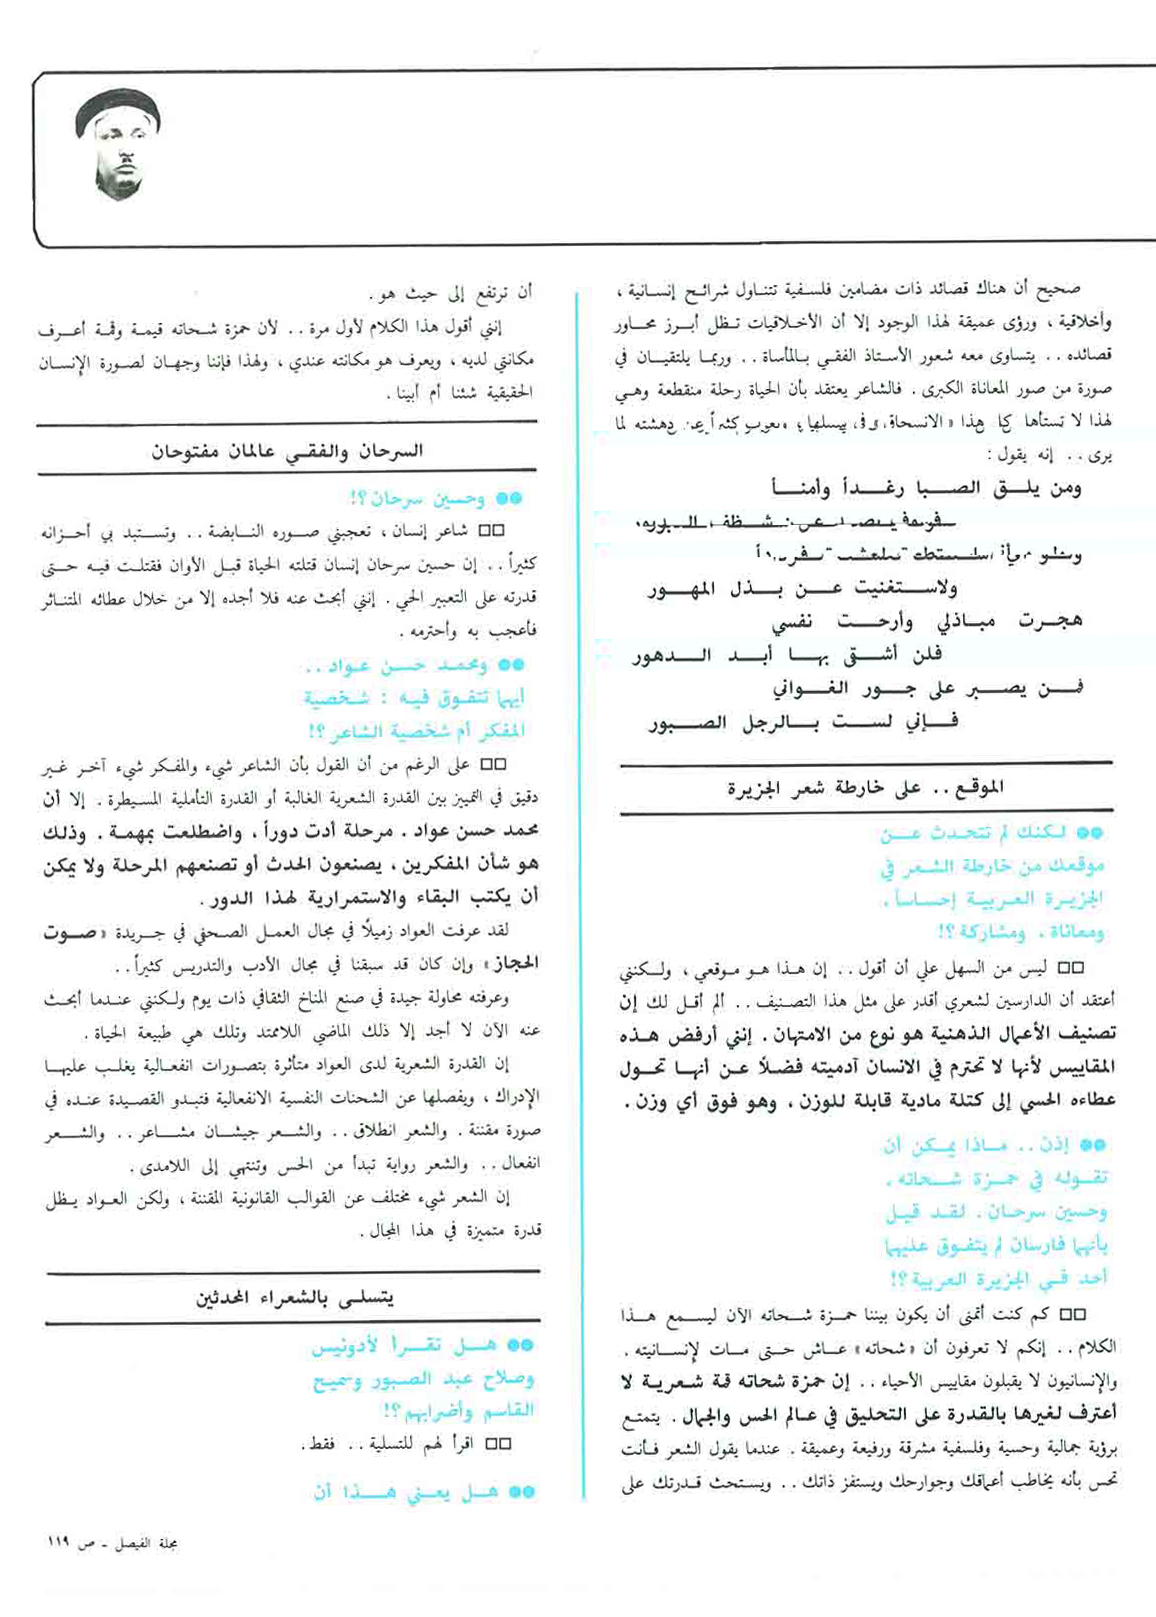 صحيح أن هناك قصائد ذات مضامين فلسفية تتناول شرائح إنسانية ،
وأخلاقية ، ورؤى عميقة لهذا الوجود إلا أن الأخلاقيات تظل أبرز محاور
قصائده . . يتساوى معه شعور الأستاذ الفقي بالمأساة . . وربما يلتقيان في
صورة من صور المعاناة الكبرى . فالشاعر يعتقد بأن الحياة رحلة منقطعة وهي
لهذا لا تستأها كا هذا « الانسحاق دهشته لما
يرى . . إنه يقول :
ومن يلق الصبا رغداً وأمناً
ولاستغنيت عن بذل المهور
هجرت مباذلي وأرحت نفسي
فلن أشقى بها أبد الدهور
فمن يصبر على جور الغواني
فإني لست بالرجل الصبور
الموقع . . على خارطة شعر الجزيرة
●● لكنك لم تتحدث عن
موقعك من خارطة الشعر في
الجزيرة العربية إحساساً ،
ومعاناة ، ومشاركة ؟!
□□ ليس من السهل علي أن أقول . . إن هذا هو موقعي ، ولكنني
أعتقد أن الدارسين لشعري أقدر على مثل هذا التصنيف . . ألم أقل لك إن
تصنيف الأعمال الذهنية هو نوع من الامتهان . إنني أرفض هذه
المقاييس لأنها لا تحترم في الانسان آدميته فضلاً عن أنها تحول
عطاءه الحسي إلى كتلة مادية قابلة للوزن ، وهو فوق أي وزن .
●● إذن . . ماذا يمكن أن
تقوله في حمزة شحاته ،
وحسين سرحان . لقد قيل
بأنهما فارسان لم يتفوق عليهما
أحد في الجزيرة العربية ؟!
□□ كم كنت أتمنى أن يكون بيننا حمزة شحاته الآن ليسمع هذا
الكلام . . إنكم لا تعرفون أن « شحاته » عاش حتى مات لإنسانيته .
والإنسانيون لا يقبلون مقاييس الأحياء . . إن حمزة شحاته قمة شعرية لا
أعترف لغيرها بالقدرة على التحليق في عالم الحس والجمال . يتمتع
برؤية جمالية وحسية وفلسفية مشرقة ورفيعة وعميقة . عندما يقول الشعر فأنت
تحس بأنه يخاطب أعماقك وجوارحك ويستفز ذاتك . . ويستحث قدرتك على
أن ترتفع إلى حيث هو .
إنني أقول هذا الكلام لأول مرة . . لأن حمزة شحاته قيمة وقمة أعرف
مكانتي لديه ، ويعرف هو مكانته عندي ، ولهذا فإننا وجهان لصورة الإنسان
الحقيقية شئنا أم أبينا .
السرحان والفقي عالمان مفتوحان
●● وحسين سرحان ؟!
□□ شاعر إنسان ، تعجبني صوره النابضة . . وتستبد بي أحزانه
كثيراً . . إن حسين سرحان إنسان قتلته الحياة قبل الأوان فقتلت فيه حتى
قدرته على التعبير الحي . إنني أبحث عنه فلا أجده إلا من خلال عطائه المتناثر
فأعجب به وأحترمه .
●● ومحمد حسن عواد . .
أيهما تتفوق فيه : شخصية
المفكر أم شخصية الشاعر ؟!
□□ على الرغم من أن القول بأن الشاعر شيء والمفكر شيء آخر غير
دقيق في التمييز بين القدرة الشعرية الغالبة أو القدرة التأملية المسيطرة . إلا أن
محمد حسن عواد . مرحلة أدت دوراً ، واضطلعت بمهمة . وذلك
هو شأن المفكرين ، يصنعون الحدث أو تصنعهم المرحلة ولا يمكن
أن يكتب البقاء والاستمرارية لهذا الدور .
لقد عرفت العواد زميلاً في مجال العمل الصحفي في جريدة « صوت
الحجاز » وإن كان قد سبقنا في مجال الأدب والتدريس كثيراً . .
وعرفته محاولة جيدة في صنع المناخ الثقافي ذات يوم ولكنني عندما أبحث
عنه الآن لا أجد إلا ذلك الماضي اللاممتد وتلك هي طبيعة الحياة .
إن القدرة الشعرية لدى العواد متأثرة بتصورات انفعالية يغلب عليها
الإدراك ، ويفصلها عن الشحنات النفسية الانفعالية فتبدو القصيدة عنده في
صورة مقننة . والشعر انطلاق . . والشعر جيشان مشاعر . . والشعر
انفعال . . والشعر رواية تبدأ من الحس وتنتهي إلى اللامدى .
إن الشعر شيء مختلف عن القوالب القانونية المقننة ، ولكن العواد يظل
قدرة متميزة في هذا المجال .
يتسلى بالشعراء المحدثين
●● هل تقرأ لأدونيس
وصلاح عبد الصبور وسميح
القاسم وأضرابهم ؟!
□□ اقرأ لهم للتسلية . . فقط .
●● هل يعني هذا أن
مجلة الفيصل ـ ص ١١٩